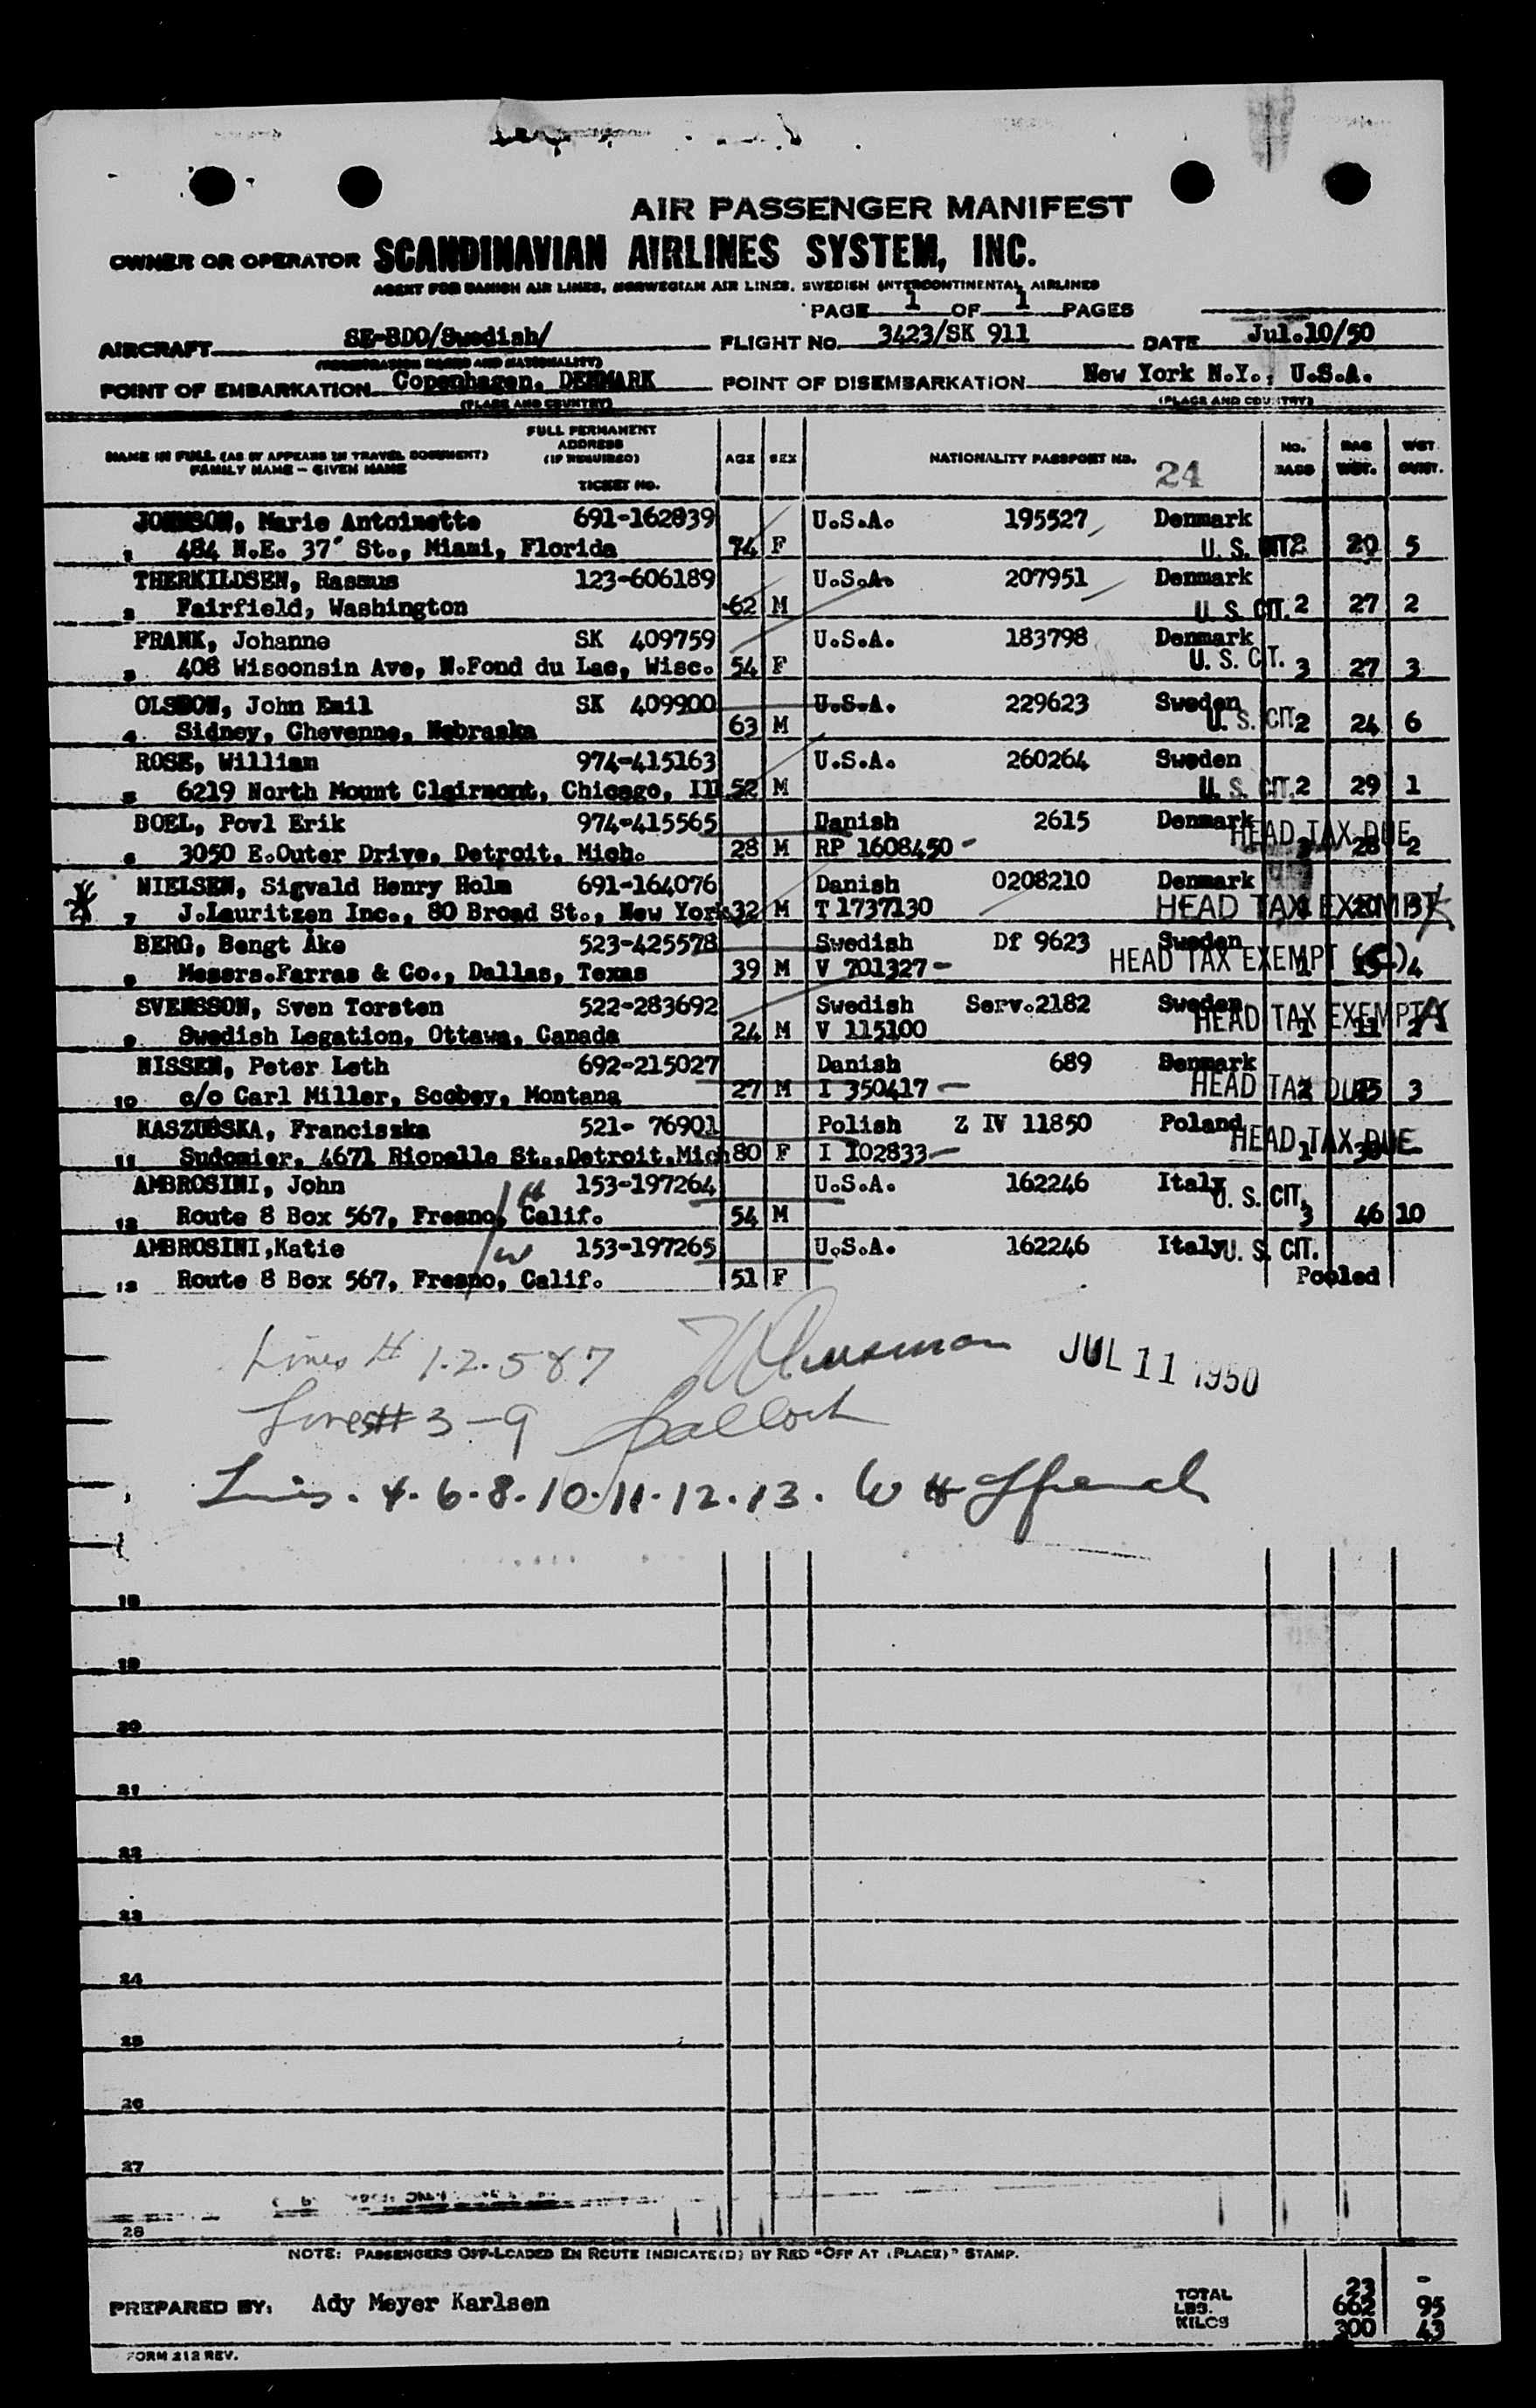 AIR PASSENGER MANIFEST
OWNER OR OPERATOR SCANDINAVIAN AIRLINES SYSTEM, INC.
AGENT FOR DANISH AIR LINES, NORWEGIAN AIR LINES, SWEDISH INTERCONTINENTAL AIRLINES
PAGE 1 OF 1 PAGES
AIRCRAFT SE-BDO/Swedish/ FLIGHT NO. 3423/SK 911 DATE Jul.10/50
(REGISTRATION MARKS AND NATIONALITY)
POINT OF EMBARKATION Copenhagen, DENMARK POINT OF DISEMBARKATION New York N.Y., U.S.A.
(PLACE AND COUNTRY) (PLACE AND COUNTRY)
NAME IN FULL (AS IT APPEARS IN TRAVEL DOCUMENT) FAMILY NAME - GIVEN NAME FULL PERMANENT ADDRESS (IF REQUIRED) TICKET NO. AGE SEX NATIONALITY PASSPORT NO. 24 NO. BAGG BAG WGT. WGT.
JOHNSON, Marie Antoinette 691-162839 U.S.A. 195527 Denmark
1 484 N.E. 37' St., Miami, Florida 74 F U. S. CIT. 2 20 5
THERKILDSEN, Rasmus 123-606189 U.S.A. 207951 Denmark
2 Fairfield, Washington 62 M U. S. CIT. 2 27 2
FRANK, Johanne SK 409759 U.S.A. 183798 Denmark
3 408 Wisconsin Ave, N.Fond du Lac, Wisc. 54 F U. S. CIT. 3 27 3
OLSSON, John Emil SK 409900 U.S.A. 229623 Sweden
4 Sidney, Cheyenne, Nebraska 63 M U. S. CIT. 2 24 6
ROSE, William 974-415163 U.S.A. 260264 Sweden
5 6219 North Mount Clairmont, Chicago, Ill 52 M U. S. CIT. 2 29 1
BOEL, Povl Erik 974-415565 Danish 2615 Denmark HEAD TAX DUE
6 3050 E.Outer Drive, Detroit, Mich. 28 M RP 1608450 - 28 2
NIELSEN, Sigvald Henry Holm 691-164076 Danish 0208210 Denmark
7 J.Lauritzen Inc., 80 Broad St., New York 32 M T 1737130 HEAD TAX EXEMPT
BERG, Bengt Åke 523-425578 Swedish Df 9623 Sweden
8 Messrs.Farras & Co., Dallas, Texas 39 M V 701327 - HEAD TAX EXEMPT (C) 1 15 4
SVENSSON, Sven Torsten 522-283692 Swedish Serv.2182 Sweden
9 Swedish Legation, Ottawa, Canada 24 M V 115100 HEAD TAX EXEMPT 1 11
NISSEN, Peter Leth 692-215027 Danish 689 Denmark
10 c/o Carl Miller, Scobey, Montana 27 M I 350417 - HEAD TAX DUE 2 3
KASZUBSKA, Franciszka 521- 76901 Polish Z IV 11850 Poland
11 Sudomier, 4671 Riopelle St.,Detroit,Mich 80 F I 102833 - HEAD TAX DUE 1
AMBROSINI, John 153-197264 U.S.A. 162246 Italy
12 Route 8 Box 567, Fresno, Calif. 54 M U. S. CIT. 3 46 10
AMBROSINI,Katie /w 153-197265 U.S.A. 162246 Italy U. S. CIT.
13 Route 8 Box 567, Fresno, Calif. 51 F Pooled
Lines # 1.2.5 & 7 JUL 11 1950
Lines# 3-9
Lines. 4.6.8.10.11.12.13.
18
19
20
21
22
23
24
25
26
27
28
NOTE: PASSENGERS OFF-LOADED EN ROUTE INDICATE(D) BY RED "OFF AT (PLACE)" STAMP.
PREPARED BY: Ady Meyer Karlsen
TOTAL 23 -
LBS. 662 95
KILOS 300 43
FORM 212 REV.